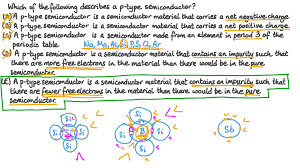 Which of the following describes a p-type semiconductor?
(A) A p-type semiconductor is a semiconductor material that carries a net negative charge.
(B) A p-type semiconductor is a semiconductor material that carries a net positive charge.
(C) A p-type semiconductor is a semiconductor made from an element in period 3 of the
periodic table. Na, Mg, Al, Si, P, S, Cl, Ar
(D) A p-type semiconductor is a semiconductor material that contains an impurity such that
there are more free electrons in the material than there would be in the pure
semiconductor.
(E) A p-type semiconductor is a semiconductor material that contains an impurity such that
there are fewer free electrons in the material than there would be in the pure
semiconductor.
Si Si
Si Si Si Si B Si Sb
Si Si